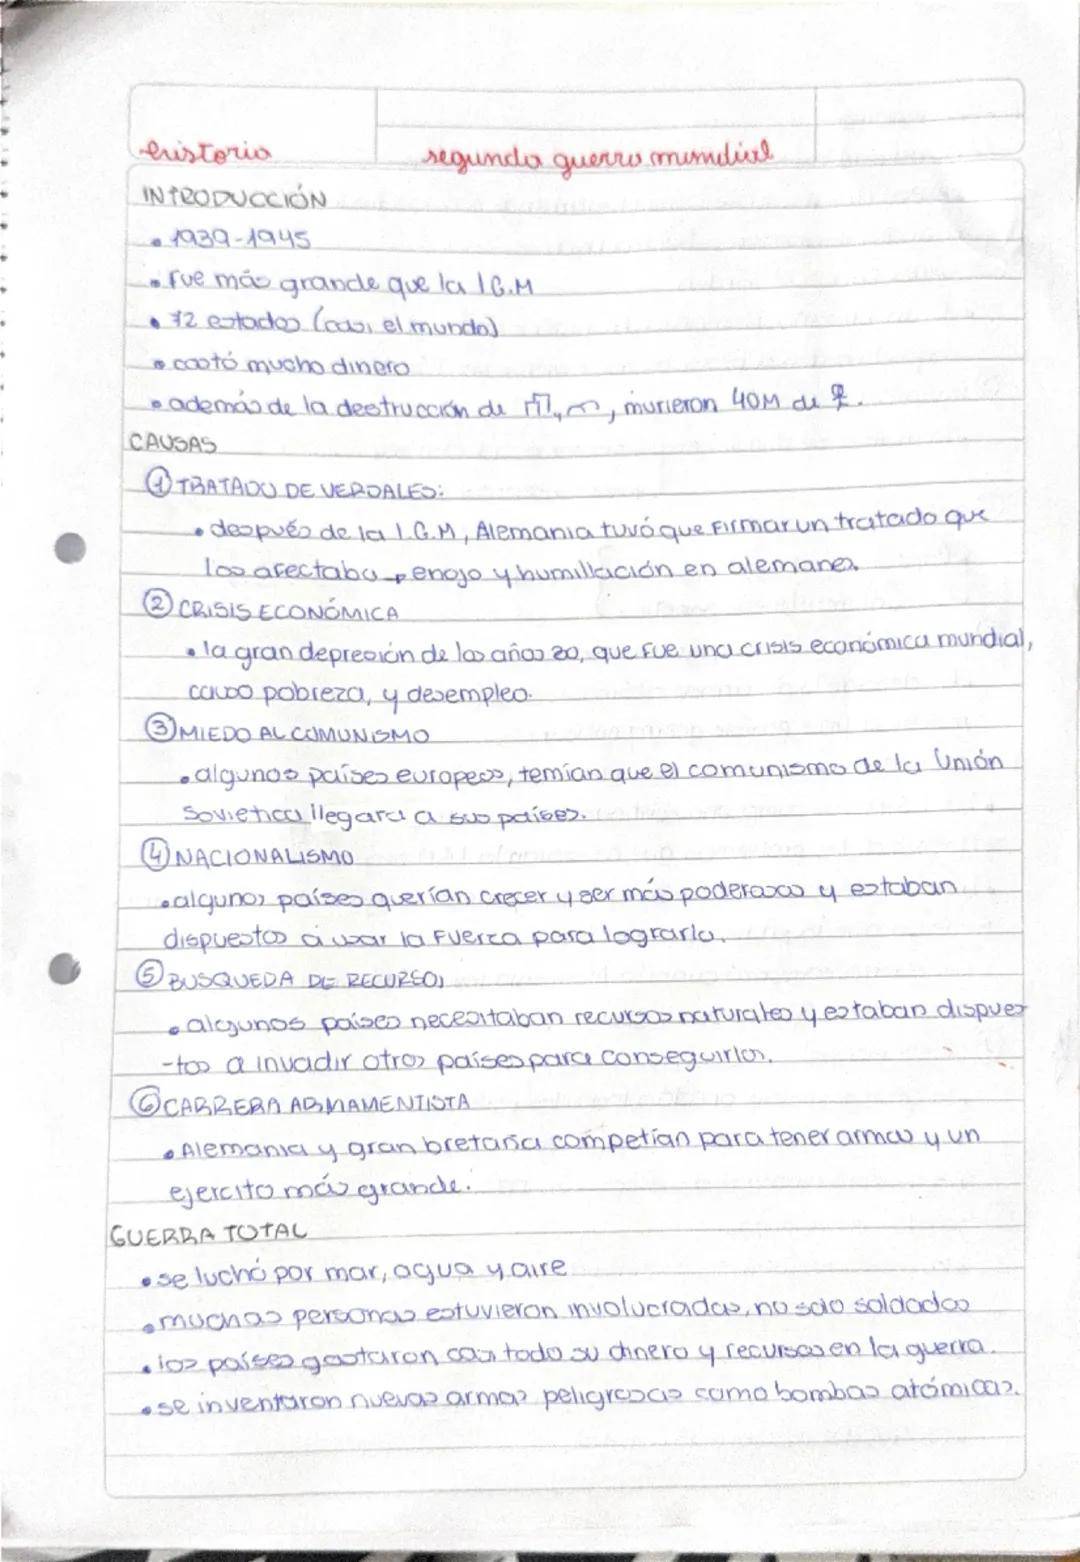 historia
segunda guerra mundial
INTRODUCCIÓN
• 1939-1945
• fue más grande que la 1G.M
• 72 estados (casi el mundo)
• costó mucho dinero
• además de la destrucción de , murieron 40M de .
CAUSAS
① TRATADO DE VERSALES:
• después de la 1.G.M, Alemania tuvó que firmar un tratado que
los afectaba → enojo y humillación en alemanes.
② CRISIS ECONÓMICA
• la gran depresión de los años 20, que fue una crisis económica mundial,
causo pobreza, y desempleo.
③ MIEDO AL COMUNISMO
• algunos países europeos, temían que el comunismo de la Unión
Sovietica llegara a sus países.
④ NACIONALISMO
• algunos países querían crecer y ser más poderosos y estaban
dispuestos a usar la fuerza para lograrlo.
⑤ BUSQUEDA DE RECURSOS
• algunos países necesitaban recursos naturales y estaban dispues
-tos a invadir otros países para conseguirlos.
⑥ CARRERA ARMAMENTISTA
• Alemania y gran bretaña competían para tener armas y un
ejercito más grande.
GUERRA TOTAL
• se luchó por mar, agua y aire
• muchas personas estuvieron involucradas, no solo soldados
• los países gastaron casi todo su dinero y recursos en la guerra.
• se inventaron nuevas armas peligrosas como bombas atómicas.